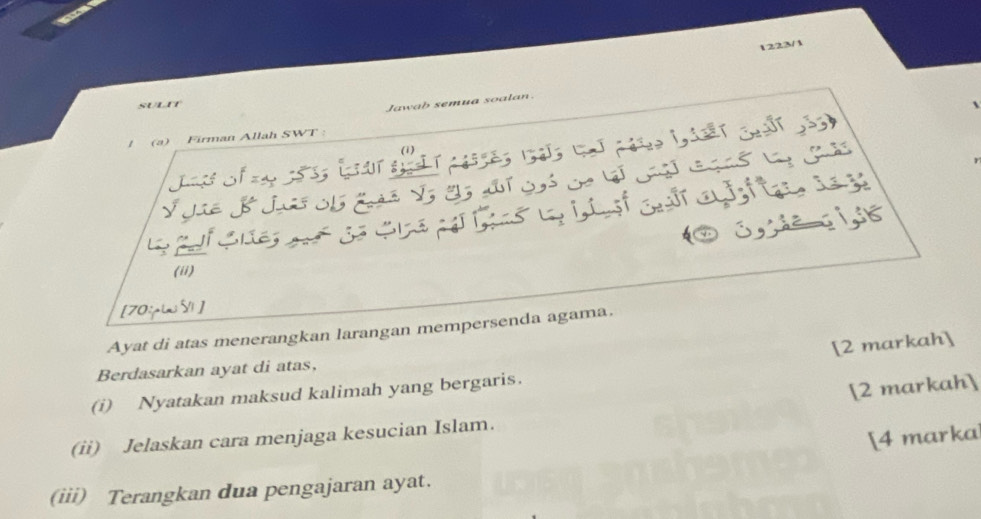 1223/1
SULIT
Jawab semua soalan.
1 (a) Firman Allah SWT :
(i)
﴿وَذَرِ ٱلَّذِينَ ٱتَّخَذُوا۟ دِينَهُمْ لَعِبًا وَلَهْوًا وَغَرَّتْهُمُ ٱلْحَيَوٰةُ ٱلدُّنْيَا وَذَكِّرْ بِهِۦٓ أَن تُبْسَلَ
نَفْسٌۢ بِمَا كَسَبَتْ لَيْسَ لَهَا مِن دُونِ ٱللَّهِ وَلِىٌّ وَلَا شَفِيعٌ وَإِن تَعْدِلْ كُلَّ عَدْلٍ لَّا
يُؤْخَذْ مِنْهَآ أُو۟لَٰٓئِكَ ٱلَّذِينَ أُبْسِلُوا۟ بِمَا كَسَبُوا۟ لَهُمْ شَرَابٌ مِّنْ حَمِيمٍ وَعَذَابٌ أَلِيمٌۢ بِمَا
كَانُوا۟ يَكْفُرُونَ ٧٠﴾
(ii)
[الأنعام:70]
Ayat di atas menerangkan larangan mempersenda agama.
Berdasarkan ayat di atas,
(i) Nyatakan maksud kalimah yang bergaris.
[2 markah]
(ii) Jelaskan cara menjaga kesucian Islam.
[2 markah]
(iii) Terangkan dua pengajaran ayat.
[4 marka